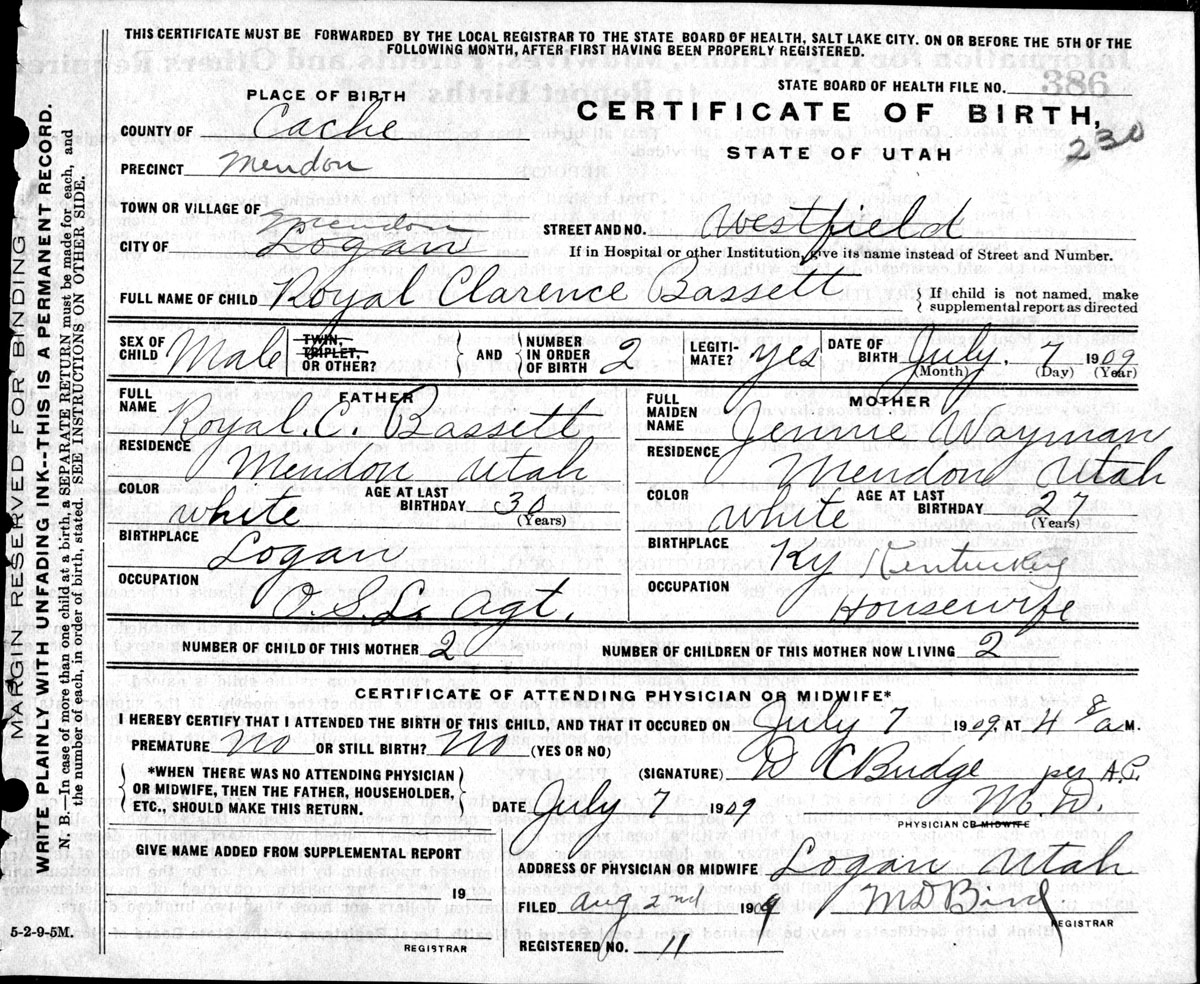 THIS CERTIFICATE MUST BE FORWARDED BY THE LOCAL REGISTRAR TO THE STATE BOARD OF HEALTH, SALT LAKE CITY. ON OR BEFORE THE 5TH OF THE
FOLLOWING MONTH, AFTER FIRST HAVING BEEN PROPERLY REGISTERED.
STATE BOARD OF HEALTH FILE NO. 386
PLACE OF BIRTH
CERTIFICATE OF BIRTH,
230
STATE OF UTAH
COUNTY OF Cache
PRECINCT Mendon
TOWN OR VILLAGE OF Mendon
CITY OF Logan
STREET AND NO. Westfield
If in Hospital or other Institution, give its name instead of Street and Number.
FULL NAME OF CHILD Royal Clarence Bassett
If child is not named, make
supplemental report as directed
SEX OF CHILD Male
TWIN, TRIPLET, OR OTHER?
AND
NUMBER IN ORDER OF BIRTH 2
LEGITI-MATE? Yes
DATE OF BIRTH July. 7 1909
(Month) (Day) (Year)
FATHER
FULL NAME Royal C. Bassett
RESIDENCE Mendon Utah
COLOR White
AGE AT LAST BIRTHDAY 30
(Years)
BIRTHPLACE Logan
OCCUPATION O.S.L. Agt.
MOTHER
FULL MAIDEN NAME Jennie Wayman
RESIDENCE Mendon Utah
COLOR White
AGE AT LAST BIRTHDAY 27
(Years)
BIRTHPLACE Ky Kentucky
OCCUPATION Housewife
NUMBER OF CHILD OF THIS MOTHER 2
NUMBER OF CHILDREN OF THIS MOTHER NOW LIVING 2
CERTIFICATE OF ATTENDING PHYSICIAN OR MIDWIFE*
I HEREBY CERTIFY THAT I ATTENDED THE BIRTH OF THIS CHILD, AND THAT IT OCCURED ON July 7 1909, AT 4 8 a M.
PREMATURE No OR STILL BIRTH? No (YES OR NO)
*WHEN THERE WAS NO ATTENDING PHYSICIAN
OR MIDWIFE, THEN THE FATHER, HOUSEHOLDER,
ETC., SHOULD MAKE THIS RETURN.
(SIGNATURE) D C Budge per A.P.
M.D.
PHYSICIAN OR MIDWIFE
DATE July 7 1909
GIVE NAME ADDED FROM SUPPLEMENTAL REPORT
19
REGISTRAR
ADDRESS OF PHYSICIAN OR MIDWIFE Logan Utah
FILED Aug 2nd 1909
REGISTRAR
REGISTERED NO. 11
5-2-9-5M.
MARGIN RESERVED FOR BINDING
WRITE PLAINLY WITH UNFADING INK--THIS IS A PERMANENT RECORD.
N. B.—In case of more than one child at a birth, a SEPARATE RETURN must be made for each, and
the number of each, in order of birth, stated. SEE INSTRUCTIONS ON OTHER SIDE.